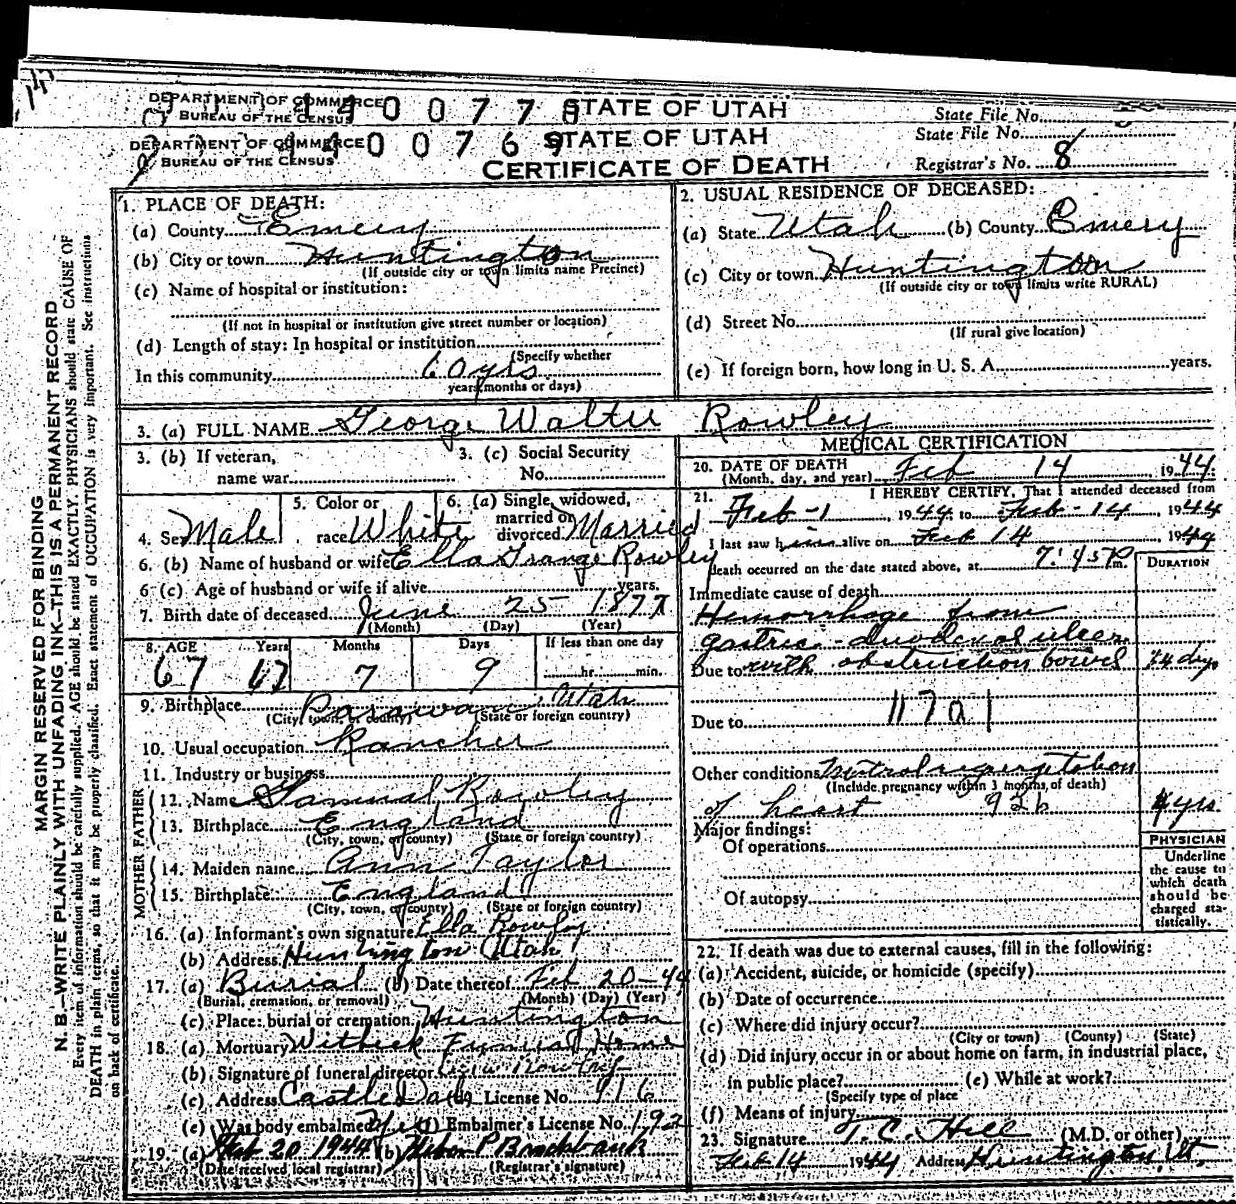 DEPARTMENT OF COMMERCE
BUREAU OF THE CENSUS
STATE OF UTAH
State File No.
DEPARTMENT OF COMMERCE
BUREAU OF THE CENSUS
STATE OF UTAH
CERTIFICATE OF DEATH
State File No.
Registrar's No. 8
MARGIN RESERVED FOR BINDING
N. B.—WRITE PLAINLY WITH UNFADING INK—THIS IS A PERMANENT RECORD
Every item of information should be carefully supplied. AGE should be stated EXACTLY. PHYSICIANS should state CAUSE OF
DEATH in plain terms, so that it may be properly classified. Exact statement of OCCUPATION is very important. See instructions
on back of certificate.
1. PLACE OF DEATH:
(a) County Emery
(b) City or town Huntington
(If outside city or town limits name Precinct)
(c) Name of hospital or institution:
(If not in hospital or institution give street number or location)
(d) Length of stay: In hospital or institution
(Specify whether
In this community 60 yrs
years, months or days)
2. USUAL RESIDENCE OF DECEASED:
(a) State Utah (b) County Emery
(c) City or town Huntington
(If outside city or town limits write RURAL)
(d) Street No.
(If rural give location)
(e) If foreign born, how long in U. S. A. years.
3. (a) FULL NAME George Walter Rowley
3. (b) If veteran,
name war
3. (c) Social Security
No.
4. Sex Male
5. Color or
race White
6. (a) Single, widowed,
married or
divorced Married
6. (b) Name of husband or wife Ella Grange Rowley
6 (c) Age of husband or wife if alive years.
7. Birth date of deceased June 25 1877
(Month) (Day) (Year)
8. AGE Years Months Days If less than one day
67 67 7 9 hr. min.
9. Birthplace Parawan Utah
(City, town, or county) (State or foreign country)
10. Usual occupation Rancher
11. Industry or business
FATHER
12. Name Samual Rowley
13. Birthplace England
(City, town, or county) (State or foreign country)
MOTHER
14. Maiden name Ann Taylor
15. Birthplace England
(City, town, or county) (State or foreign country)
16. (a) Informant's own signature Ella Rowley
(b) Address Huntington Utah
17. (a) Burial (b) Date thereof Feb 20-44
(Burial, cremation, or removal) (Month) (Day) (Year)
(c) Place: burial or cremation Huntington
18. (a) Mortuary Funeral Home
(b) Signature of funeral director
(c) Address Castle Dale License No. 916
(e) Was body embalmed Yes (f) Embalmer's License No. 192
19. (a) Feb 20 1944 (b)
(Date received local registrar) (Registrar's signature)
MEDICAL CERTIFICATION
20. DATE OF DEATH
(Month, day, and year) Feb 14 1944
21. I HEREBY CERTIFY, That I attended deceased from
Feb-1, 1944 to Feb-14, 1944
I last saw him alive on Feb 14, 1944
death occurred on the date stated above, at 7:45 P.m.
DURATION
Immediate cause of death
Hemorrhage from
gastric-duodenal ulcer
Due to with obstruction bowel 14 days
Due to
Other conditions Mitral regurgetation
(Include pregnancy within 3 months of death)
of heart 92b 4 yrs.
Major findings:
Of operations
Of autopsy
PHYSICIAN
Underline
the cause to
which death
should be
charged sta-
tistically.
22. If death was due to external causes, fill in the following:
(a) Accident, suicide, or homicide (specify)
(b) Date of occurrence
(c) Where did injury occur?
(City or town) (County) (State)
(d) Did injury occur in or about home on farm, in industrial place,
in public place? (e) While at work?
(Specify type of place
(f) Means of injury
23. Signature T. C. Hill (M.D. or other)
Feb 14 1944 Address Huntington, Ut.